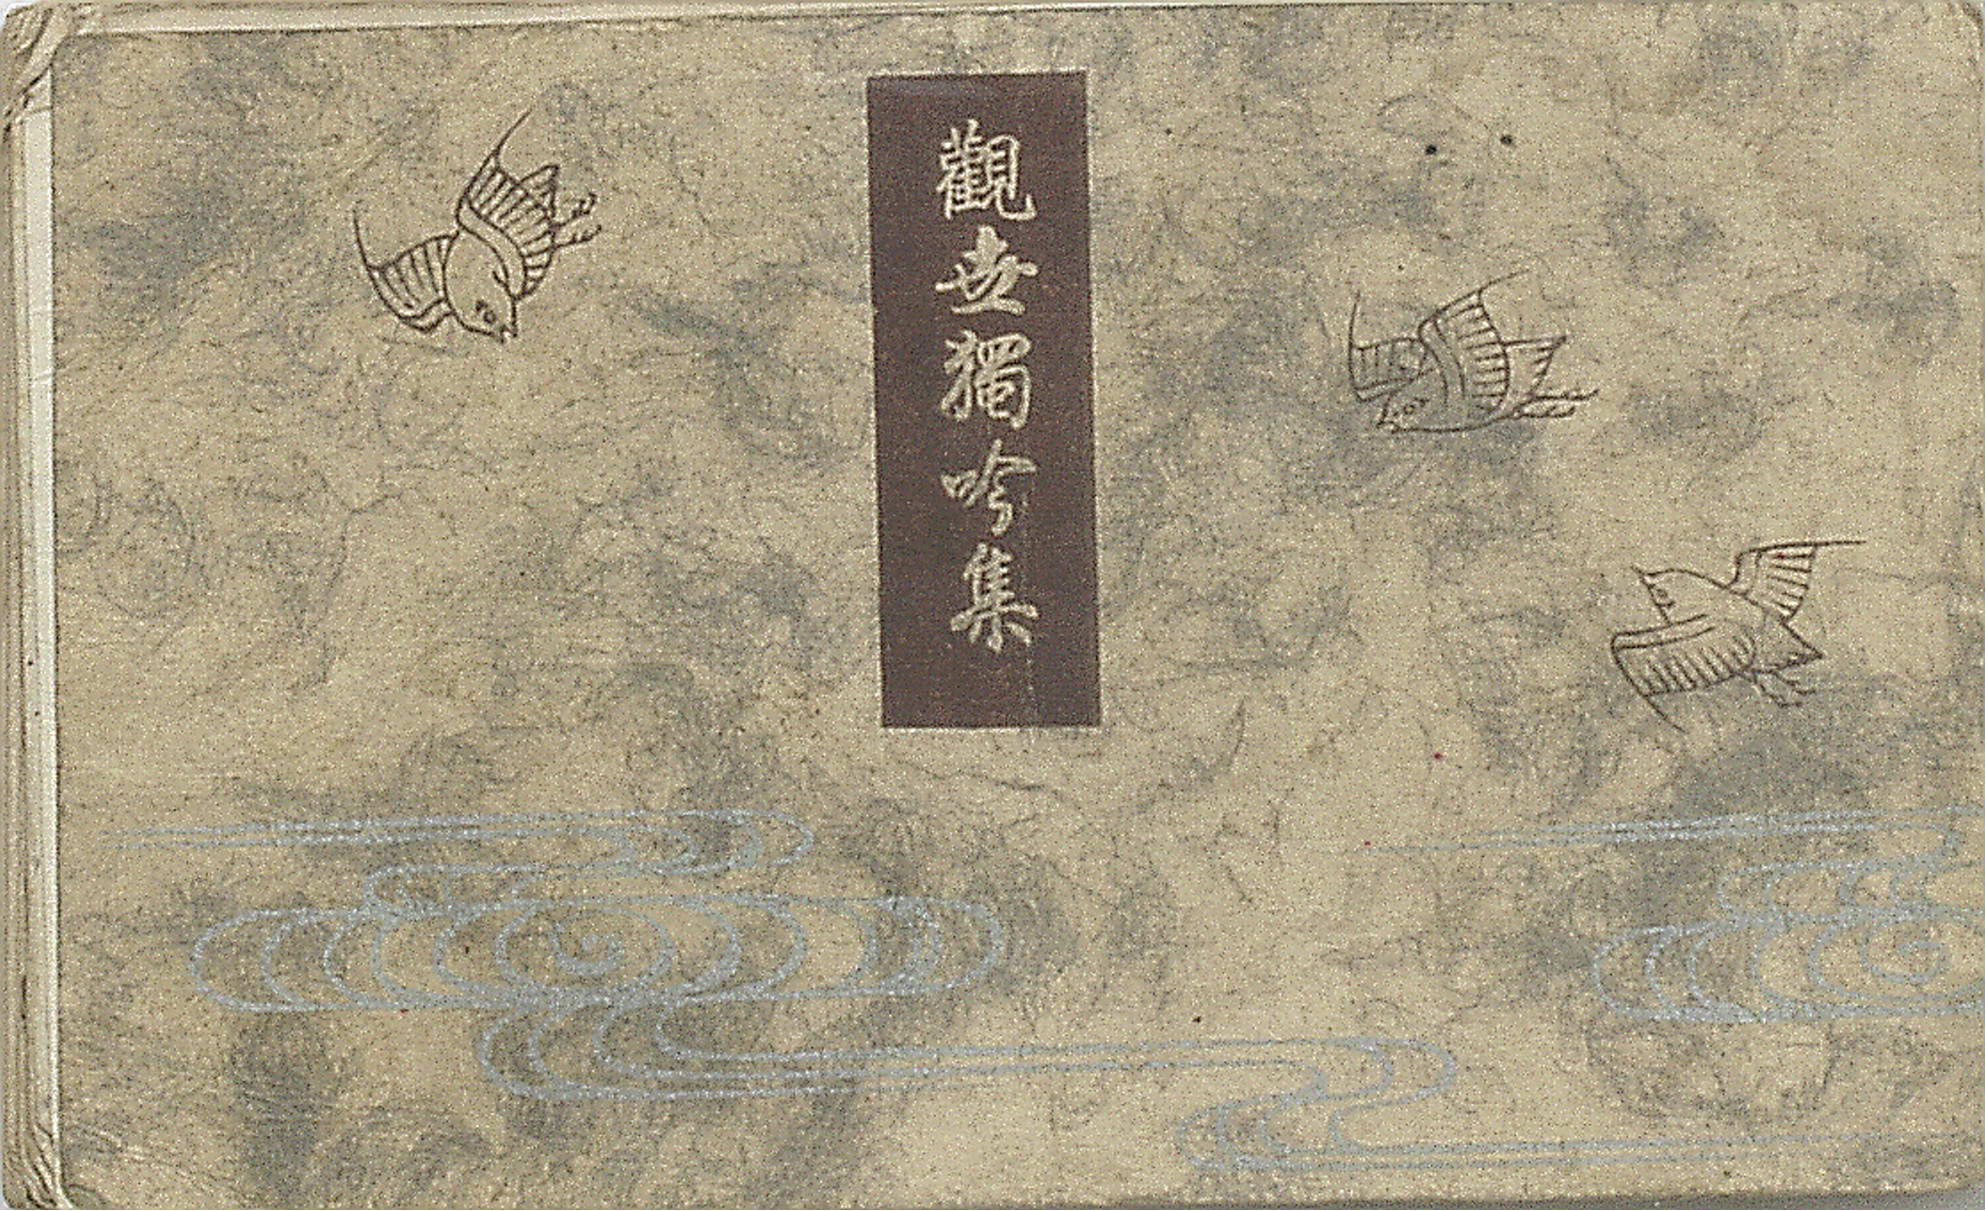 觀世獨吟集